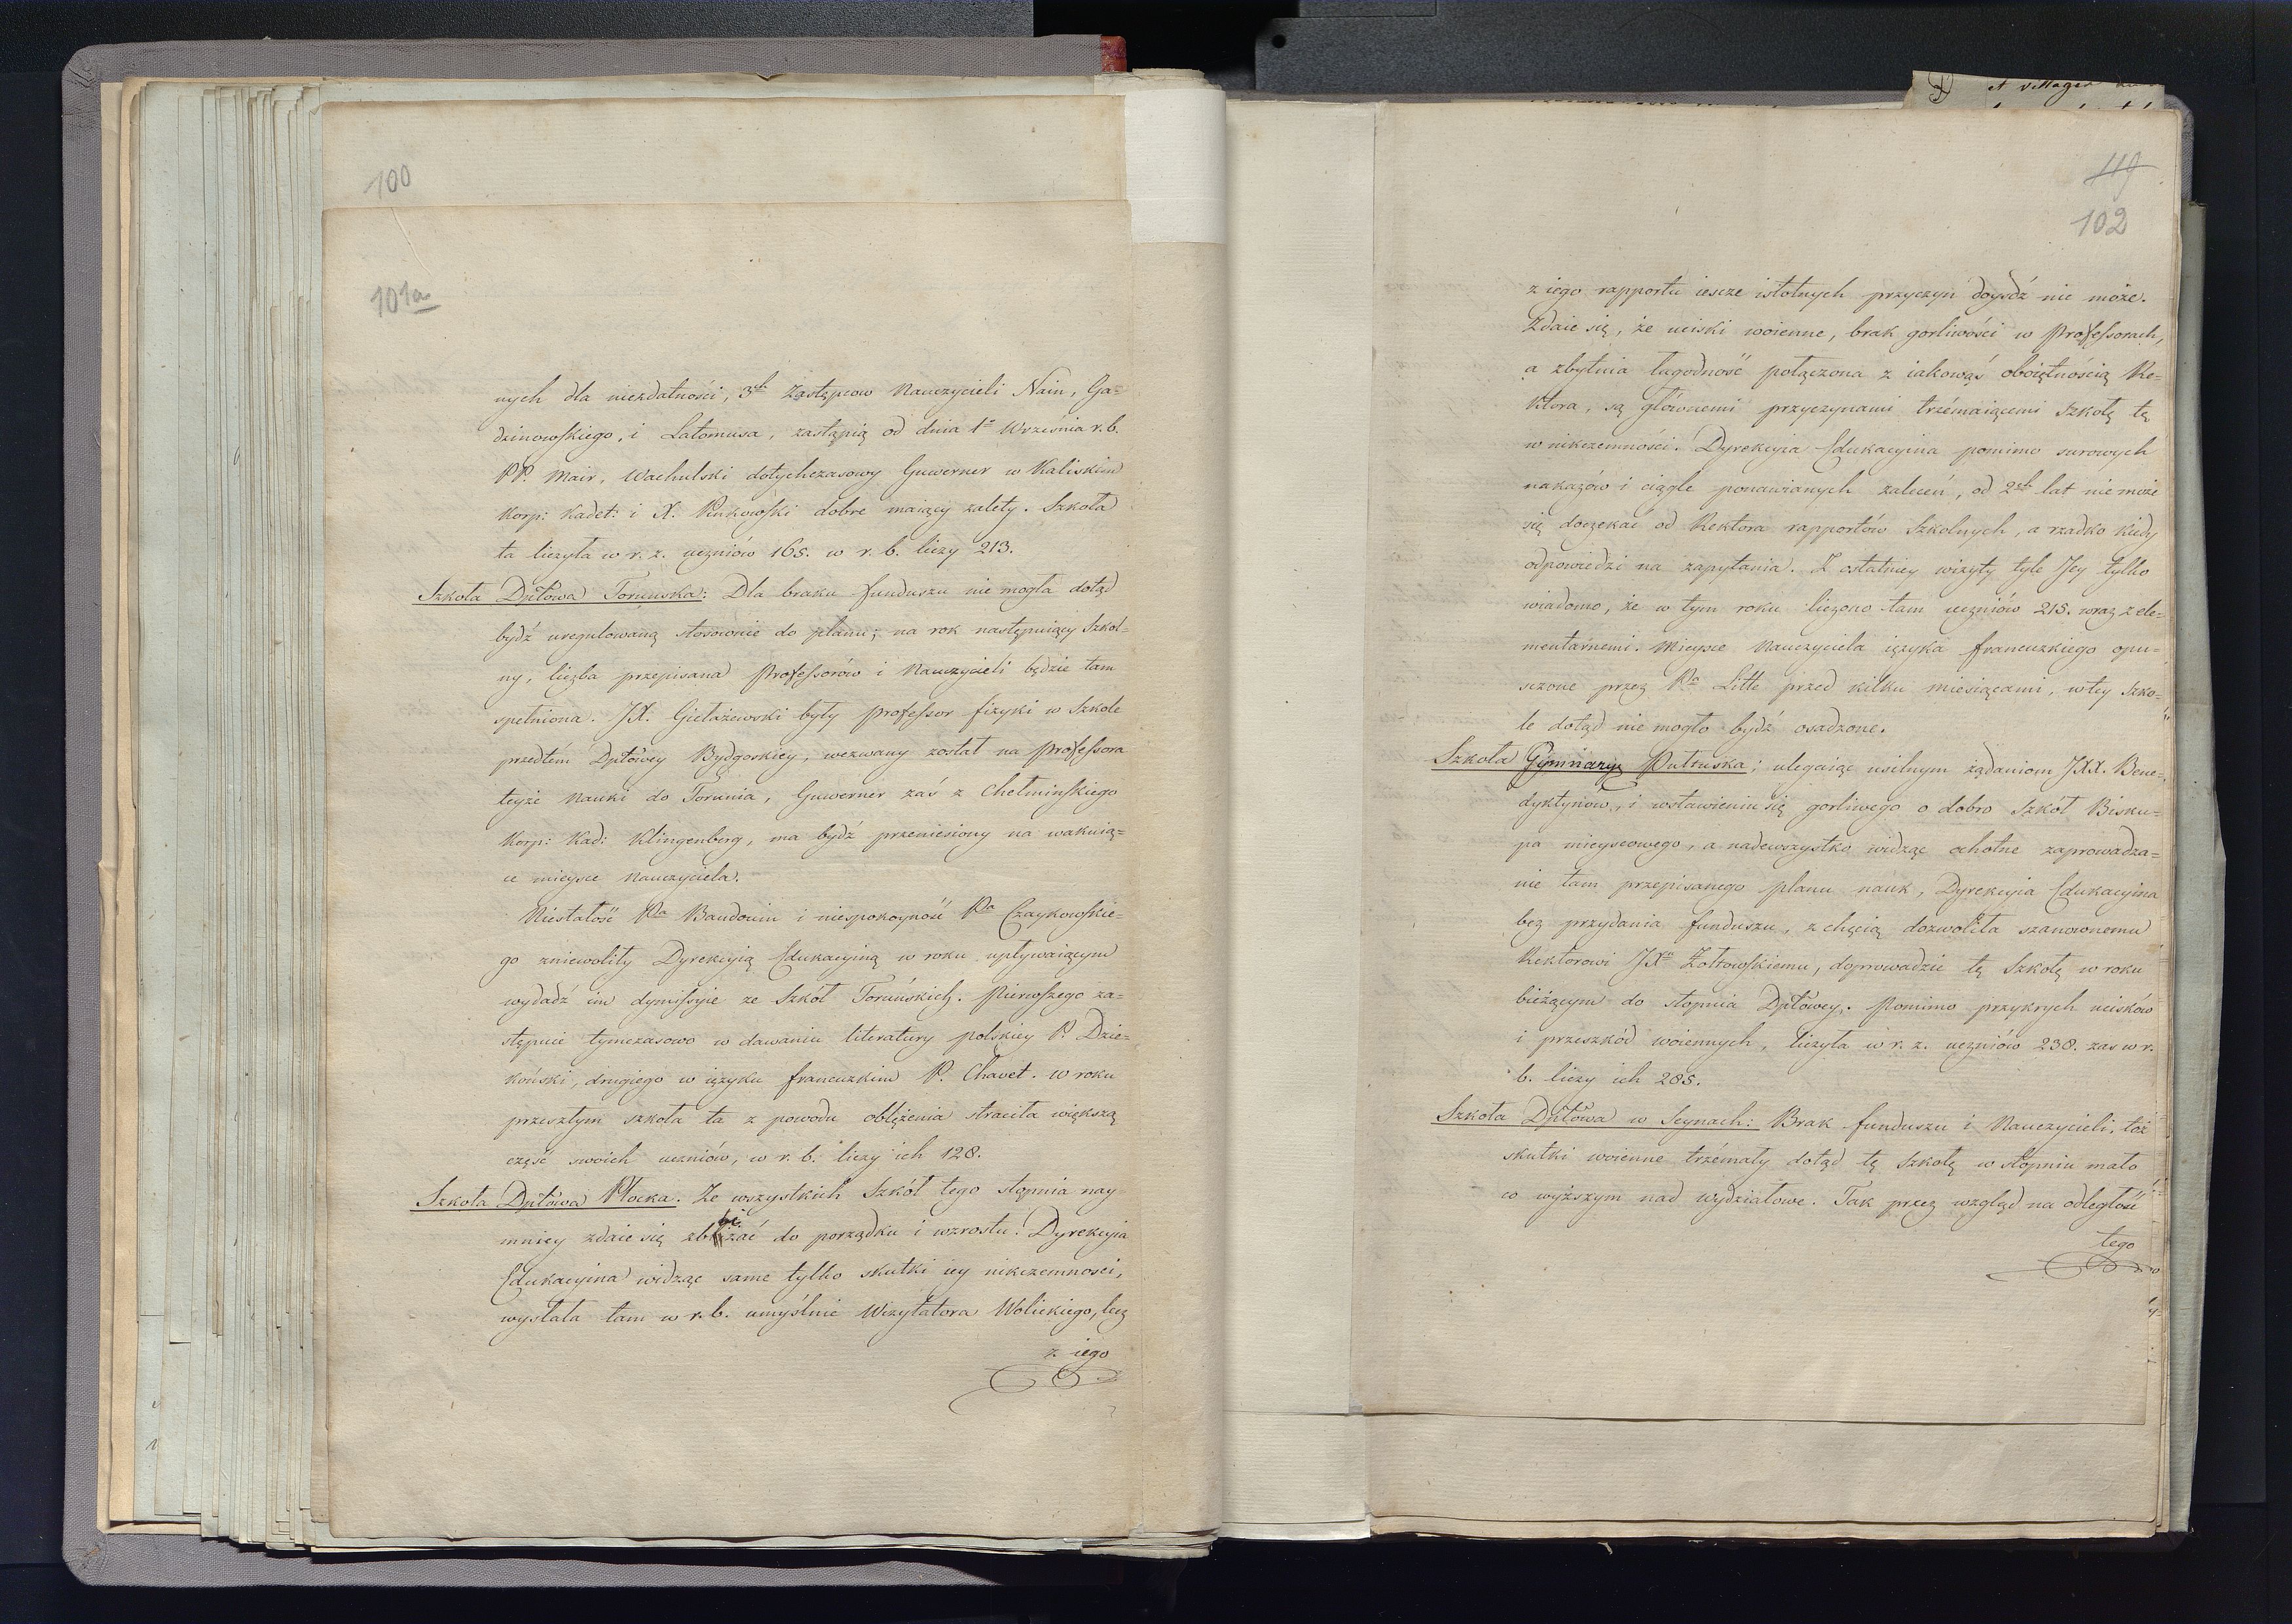 100
101a
nych dla niezdatności, 3ch Zastępcow Nauczycieli Nain, Ga=
dzinowskiego, i Latomusa, zastąpią od dnia 1o Września r.b.
PP. Mair, Wachulski dotychczasowy Guwerner w Kaliskim
Korp: Kadet: i X. Rukowski dobre maiący zalety. Szkoła
ta liczyła w r. z. uczniów 165. w r. b. liczy 213.
Szkoła Dptowa Toruńska: Dla braku funduszu nie mogła dotąd
bydź uregulowaną stosownie do planu; na rok następuiący Szkol=
ny, liczba przepisana Professorów i Nauczycieli będzie tam
spełniona. JX. Giełażewski były professor fizyki w Szkole
przedtém Dptowey Bydgoskiey, wezwany został na professora
teyże Nauki do Torunia, Guwerner zaś z Chełmińskiego
Korp: Kad: Klingenberg, ma bydź przeniesiony na wakuią=
ce mieysce Nauczyciela.
Niestałość Pa Baudouin i niespokoyność Pa Czaykowskie=
go zniewoliły Dyrekcyią Edukacyiną w roku upływaiącym
wydadź im dymissyie ze Szkół Toruńskich. Pierwszego za=
stępuie tymczasowo w dawaniu literatury polskiey P. Dzie=
koński, drugiego w ięzyku francuzkim P. Chavet. w roku
przeszłym szkoła ta z powodu oblężenia straciła większą
część swoich uczniów, w r. b. liczy ich 128.
Szkoła Dptowa Płocka. Ze wszystkich Szkół tego stopnia nay=
mniey zdaie się zbliżać do porządku i wzrostu! Dyrekcyia
Edukacyina widząc same tylko skutki iey nikczemności,
wysłała tam w r. b. umyślnie Wizytatora Wolickiego, lecz
z iego
119
102
z iego rapportu iescze istotnych przyczyn doyśdź nie może.
Zdaie się, że uciski woienne, brak gorliwości w Professorach,
a zbytnia łagodność połączona z iakowąś oboiętnością Re=
ktora, są głównemi przyczynami trzémaiącemi Szkołę tę
w nikczemności. Dyrekcyia Edukacyina pomimo surowych
nakazów i ciągle ponawianych zaleceń, od 2ch lat nie może
się doczekać od Rektora rapportów Szkolnych, a rzadko kiedy
odpowiedzi na zapytania. Z ostatniey wizyty tyle Jey tylko
wiadomo, że w tym roku liczono tam uczniów 215. wraz z ele=
mentarnemi. Mieysce Nauczyciela ięzyka francuzkiego opu=
szczone przez Pa Litte przed kilku miesiącami, w tey Szko=
le dotąd nie mogło bydź osadzone.
Szkoła Gymnazyi Pułtuska; ulegaiąc usilnym żądaniom JXX. Bene=
dyktynów, i wstawieniu się gorliwego o dobro Szkół Bisku=
pa mieyscowego, a nadewszystko widząc ochotne zaprowadza=
nie tam przepisanego planu nauk, Dyrekcyia Edukacyina
bez przydania funduszu, z chęcią dozwoliła szanownemu
Rektorowi JXo Zołtowskiemu, doprowadzić tę Szkołę w roku
bieżącym do stopnia Dptowey. Pomimo przykrych ucisków
i przeszkód woiennych, liczyła w r. z. uczniów 230. zaś w r.
b. liczy ich 285.
Szkoła Dptowa w Seynach: Brak funduszu i Nauczycieli, też
skutki woienne trzémały dotąd tę Szkołę w stopniu mało
co wyższym nad wydziałowe. Tak przez wzgląd na odległość
tego